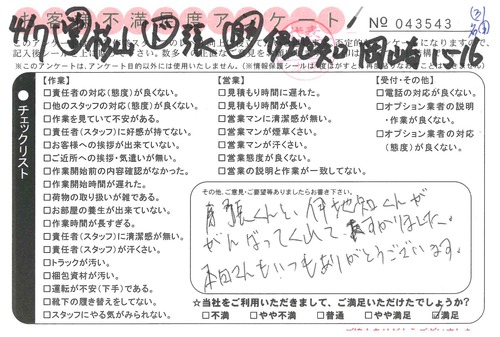 お客様不満足度アンケート
No 043543
岡崎 1516
記入後シール
※このアンケートは、アンケート目的以外には使用いたしません。
チェックリスト
【作業】
□責任者の対応(態度)が良くない。
□他のスタッフの対応(態度)が良くない。
□作業を見ていて不安がある。
□責任者(スタッフ)に好感が持てない。
□お客様への挨拶が出来ていない。
□ご近所への挨拶・気遣いが無い。
□作業開始前の内容確認がなかった。
□作業開始時間が遅れた。
□荷物の取り扱いが雑である。
□お部屋の養生が出来ていない。
□作業時間が長すぎる。
□責任者(スタッフ)に清潔感が無い。
□責任者(スタッフ)が汗くさい。
□トラックが汚い。
□梱包資材が汚い。
□運転が不安(下手)である。
□靴下の履き替えをしてない。
□スタッフにやる気がみられない。
【営業】
□見積もり時間に遅れた。
□見積もり時間が長い。
□営業マンに清潔感が無い。
□営業マンが煙草くさい。
□営業マンが汗くさい。
□営業態度が良くない。
□営業の説明と作業が一致してない。
【受付・その他】
□電話の対応が良くない。
□オプション業者の説明
・作業が良くない。
□オプション業者の対応
(態度)が良くない。
その他、ご意見・ご要望等ありましたらお書き下さい。
くんと、伊地知くんが
がんばってくれて、助かりました。
本田さんもいつもありがとうございます。
☆当社をご利用いただきまして、ご満足いただけたでしょうか?
□不満 □やや不満 □普通 □やや満足 ☑満足